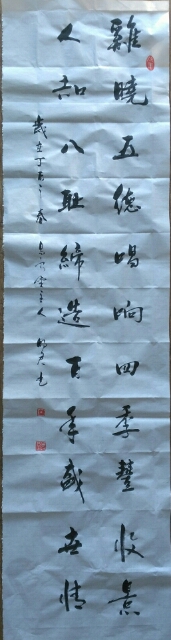 雞曉五德唱响四季豐收景
人知八耻締造百年盛世情
歲在丁酉年春